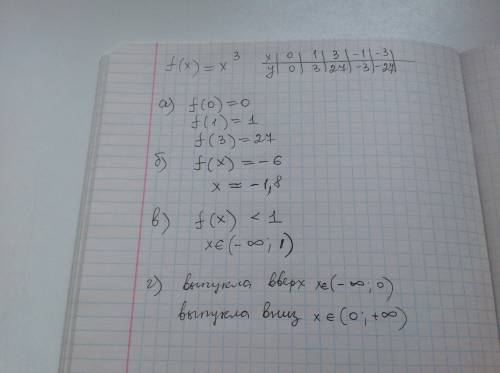 f(x) = x³
x | 0 | 1 | 3 | -1 | -3 |
y | 0 | 3 | 27 | -3 | -27 |
а) f(0) = 0
f(1) = 1
f(3) = 27
б) f(x) = -6
x ≈ -1,8
в) f(x) < 1
x ∈ (-∞; 1)
г) выпукла вверх x ∈ (-∞; 0)
выпукла вниз x ∈ (0; +∞)